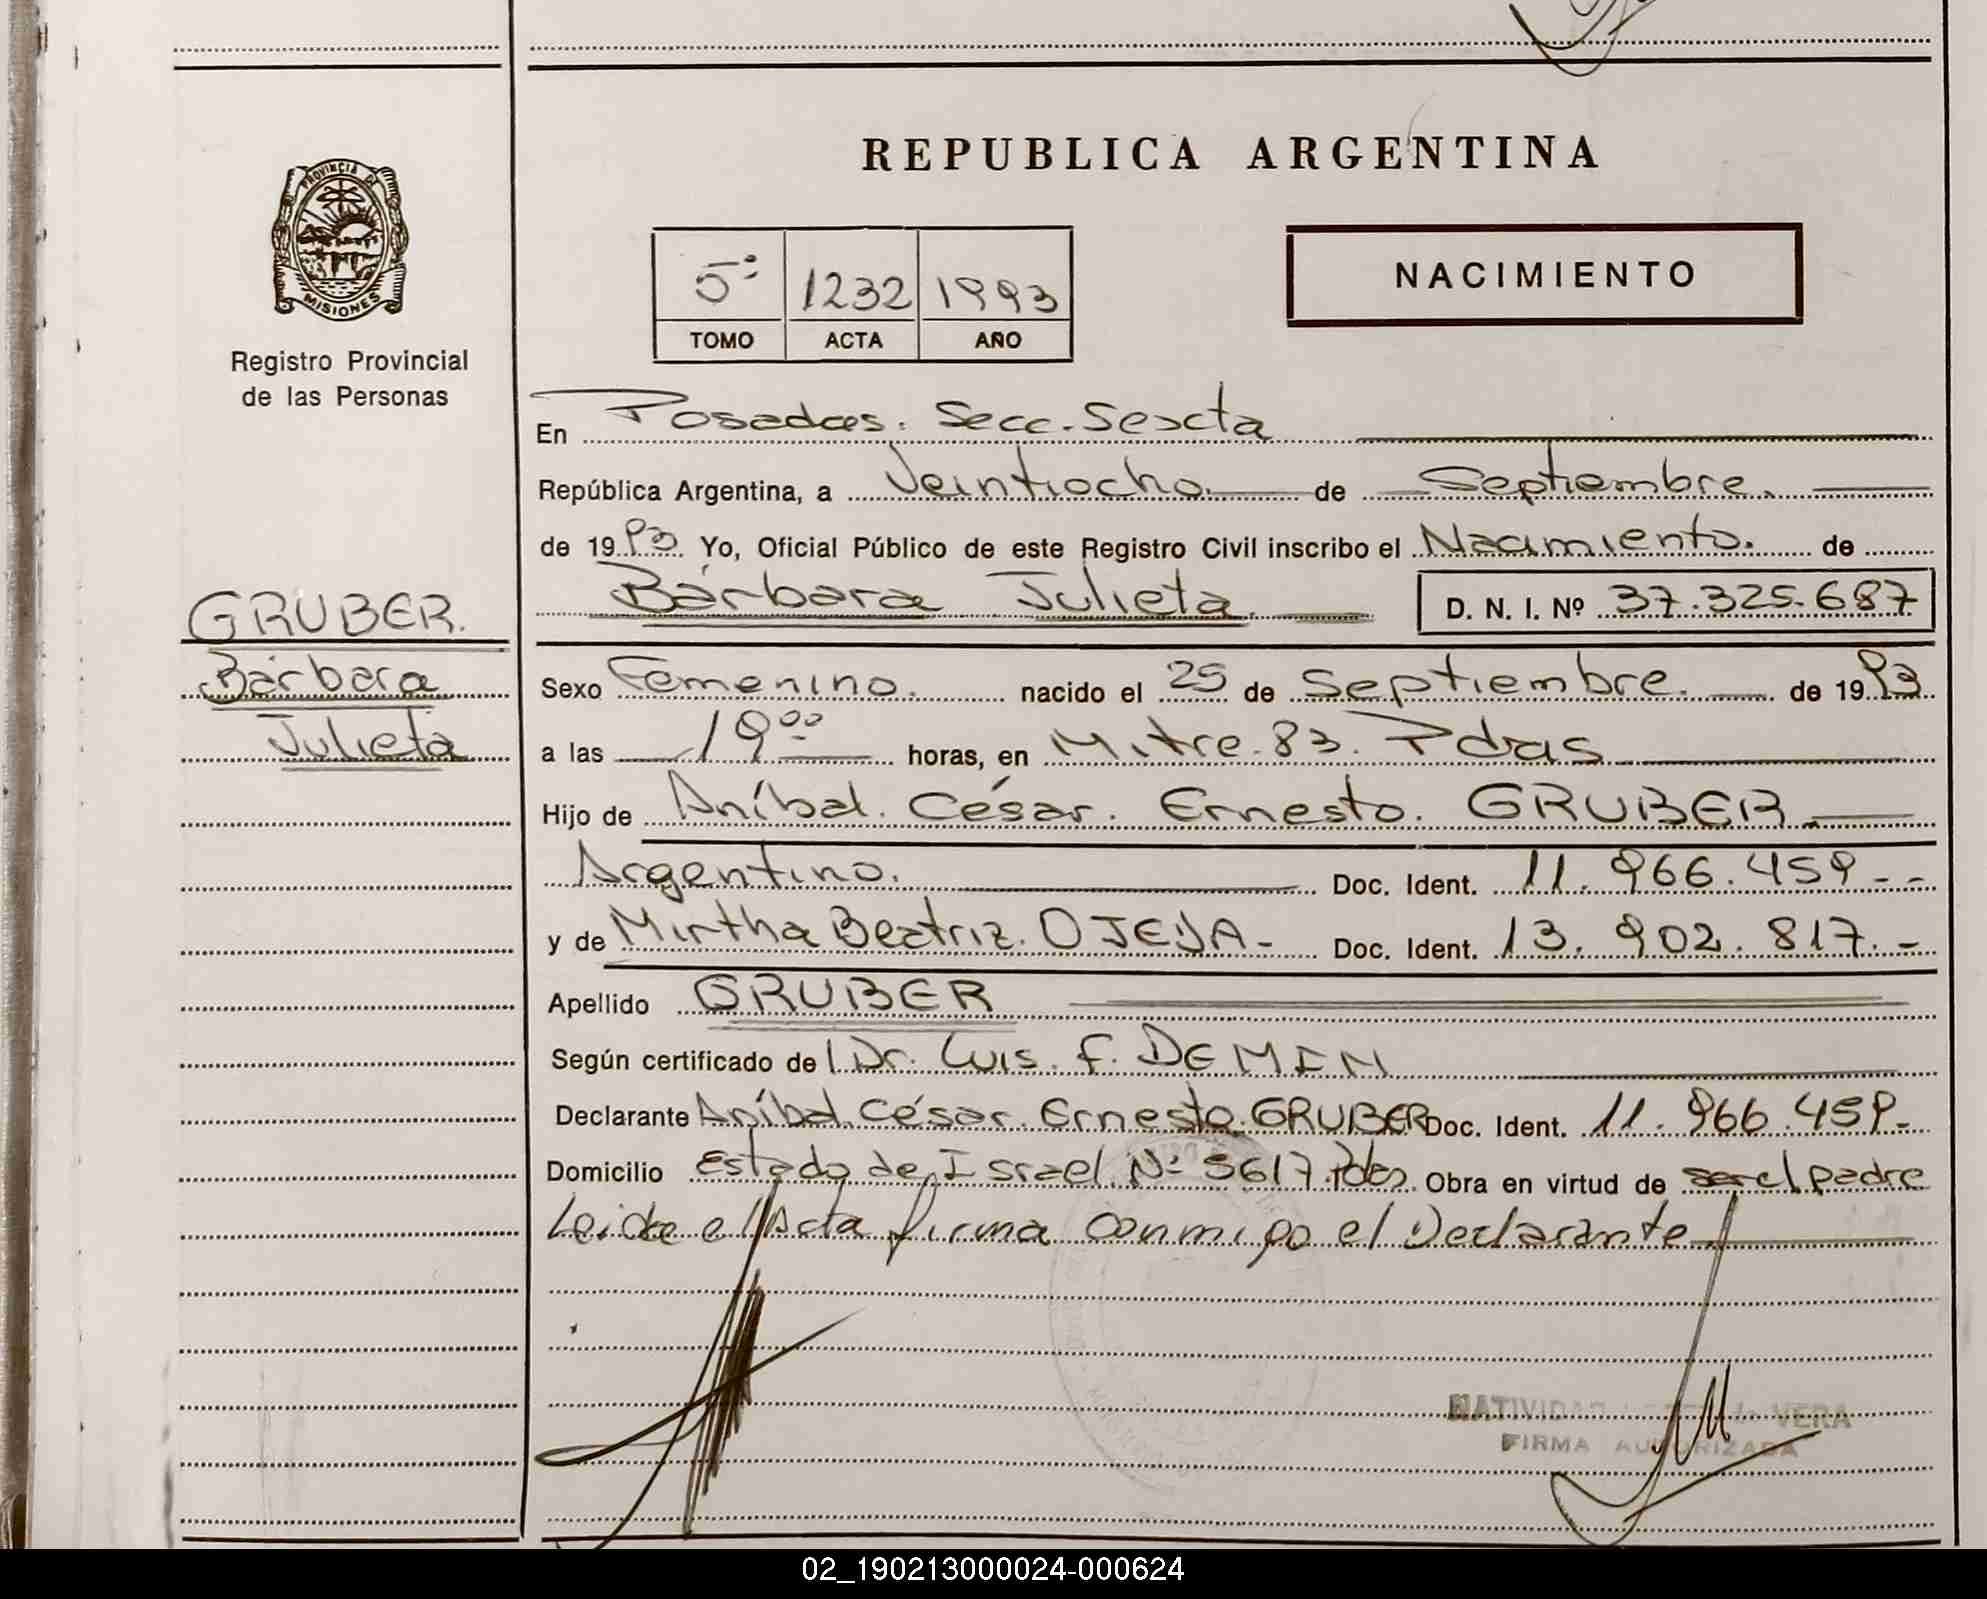 REPUBLICA ARGENTINA
PROVINCIA DE
MISIONES
Registro Provincial
de las Personas
5º 1232 1993
TOMO ACTA AÑO
NACIMIENTO
En Posadas. Secc. Sexta
República Argentina, a Veintiocho. de Septiembre.
de 1993. Yo, Oficial Público de este Registro Civil inscribo el Nacimiento. de
Bárbara Julieta. D. N. I. Nº 37.325.687
GRUBER.
Bárbara
Julieta
Sexo Femenino. nacido el 25 de Septiembre. de 1993.
a las 19⁰⁰ horas, en Mitre. 83. Pdas
Hijo de Aníbal. César. Ernesto. GRUBER.
Argentino. Doc. Ident. 11.966.459--
y de Mirtha Beatriz. OJEDA- Doc. Ident. 13.902.817.-
Apellido GRUBER
Según certificado de l Dr. Luis. F. DEMIN
Declarante Aníbal César. Ernesto. GRUBER Doc. Ident. 11.966.459.-
Domicilio Estado de Israel Nº 5617. Pdas. Obra en virtud de ser el padre
Leida el Acta firma conmigo el Declarante
NATIVIDAD de VERA
FIRMA AUTORIZADA
02_190213000024-000624